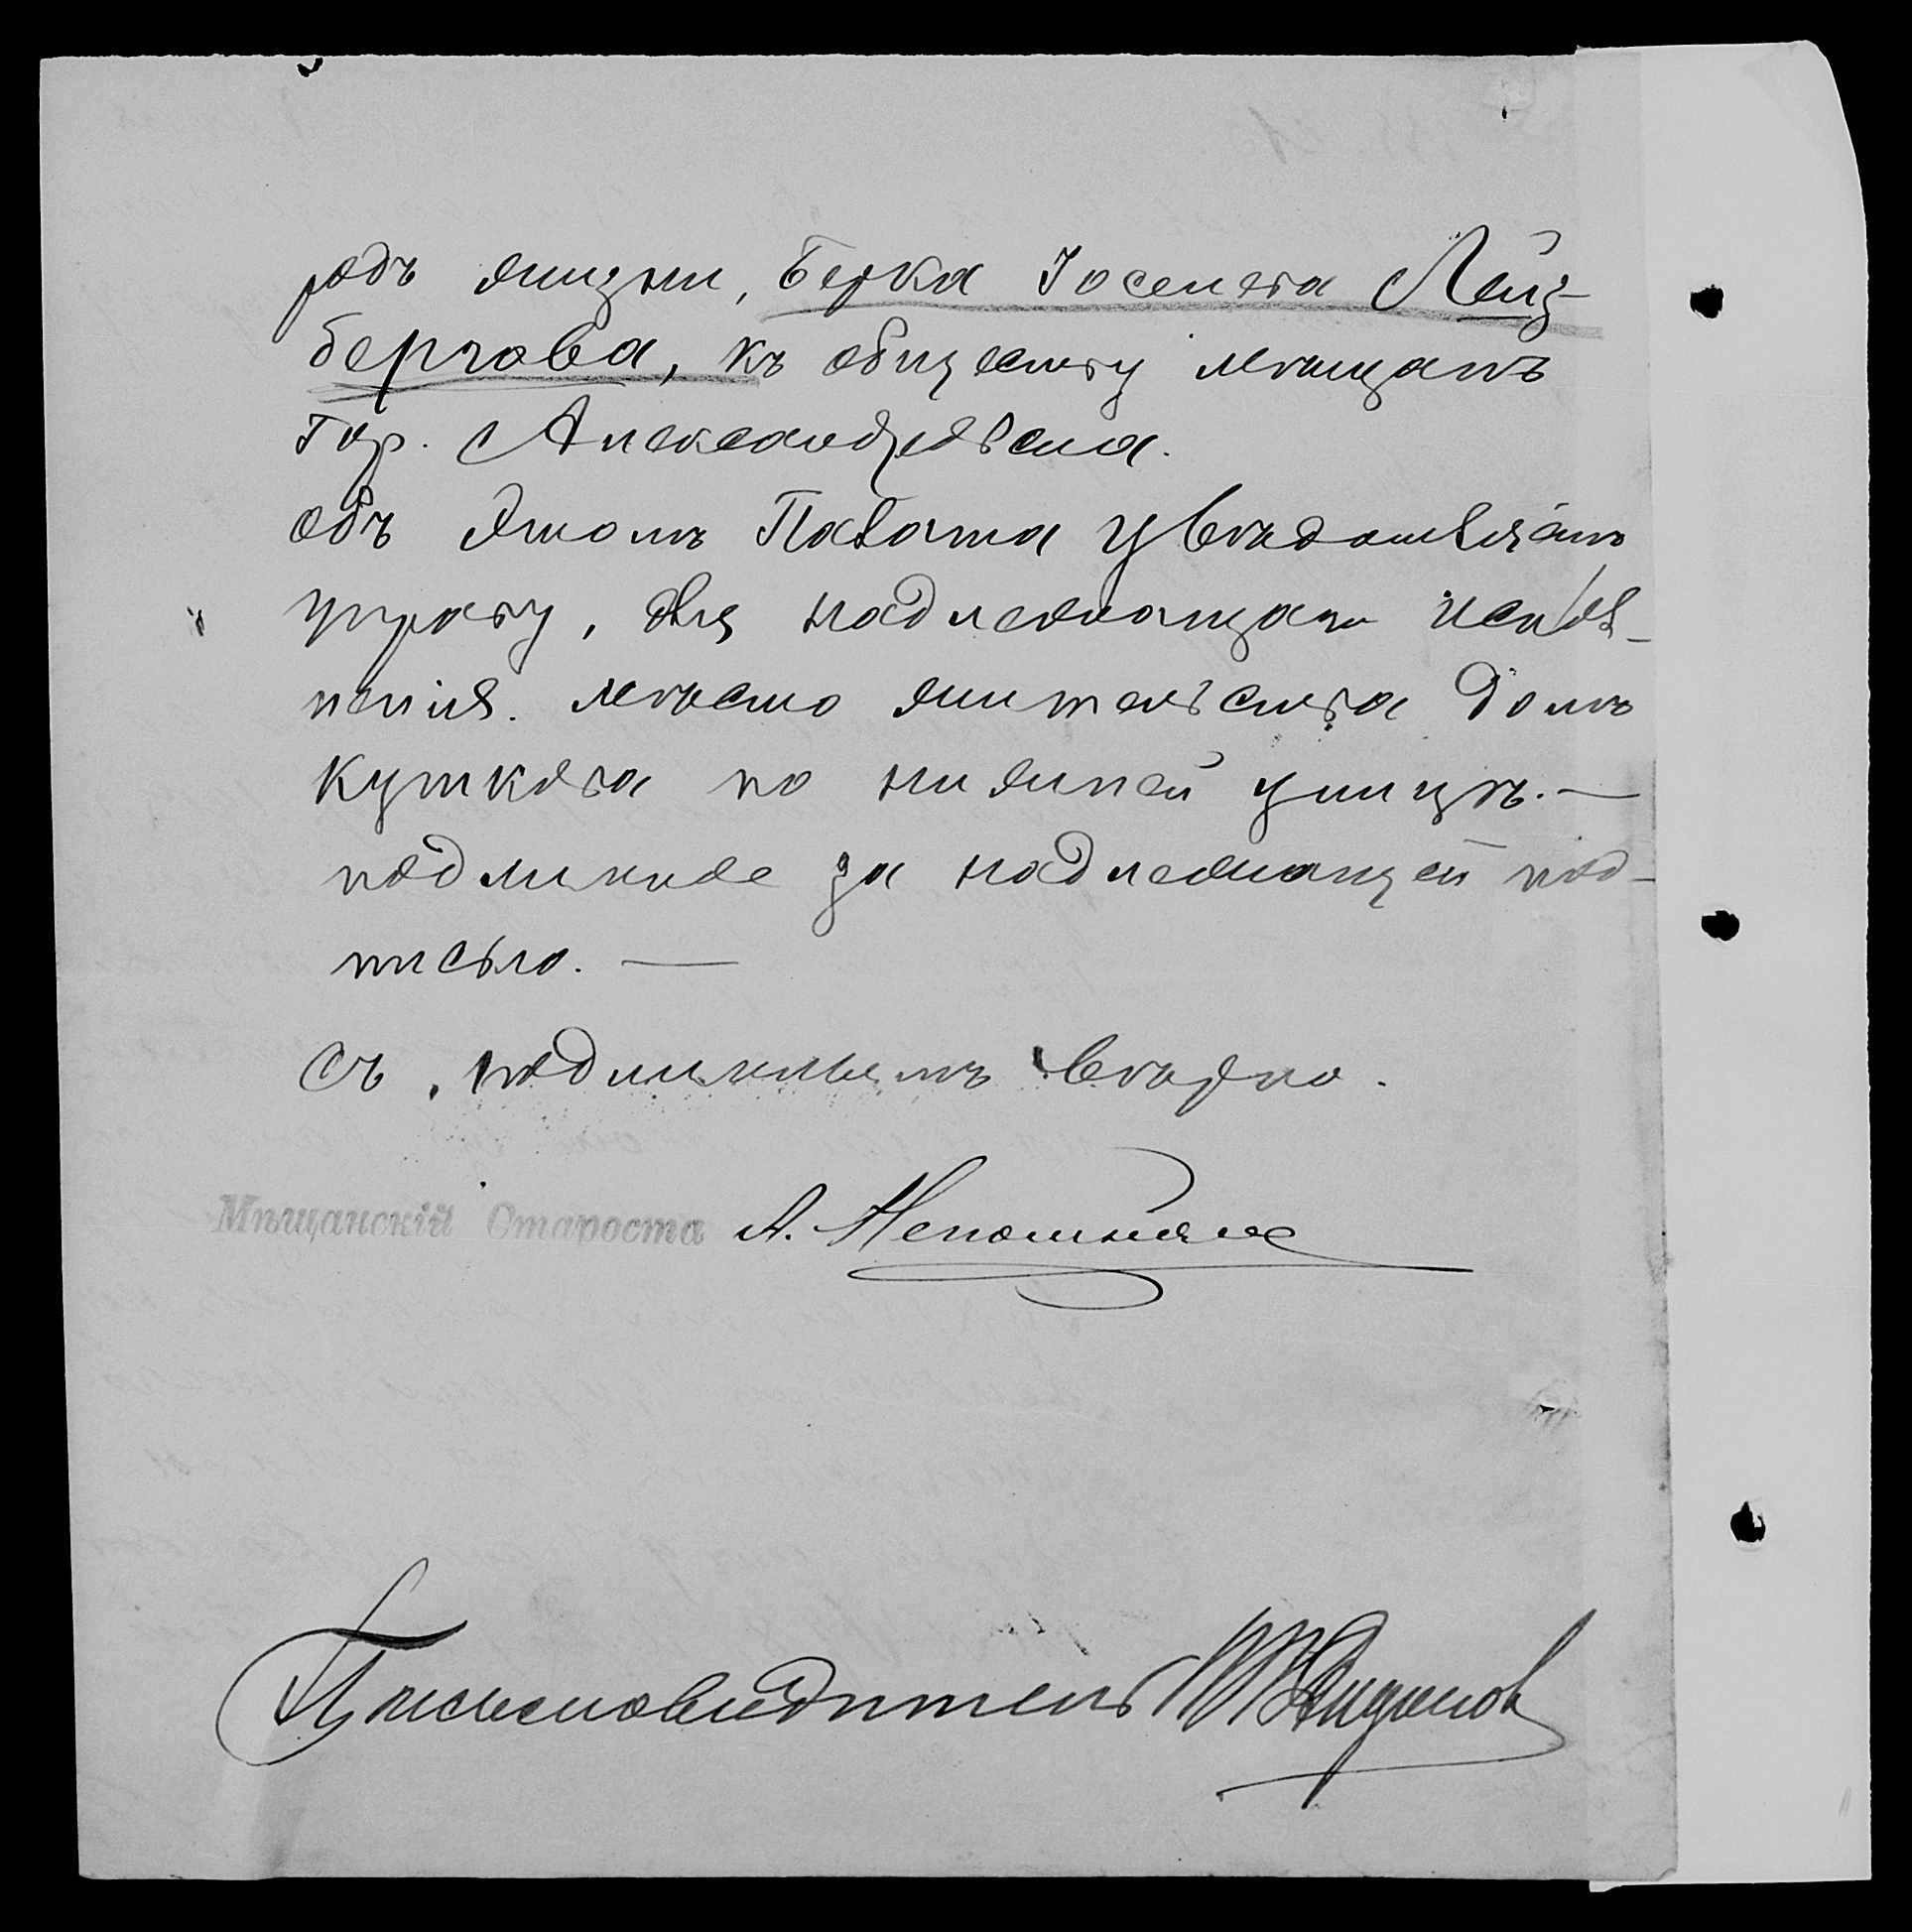 родъ жизни, Берка Іоселева Лейз-
бергова, къ обществу мѣщанъ
Гор. Александровска.
объ этомъ Палата увѣдомляетъ
управу, для надлежащаго испол-
ненія. мѣсто жительства домъ
Куткова по нижней улицѣ. —
подлинное за надлежащей под-
писью. —
Съ подлиннымъ вѣрно.
Мѣщанскій Староста А. Непомнящ
Письмоводитель